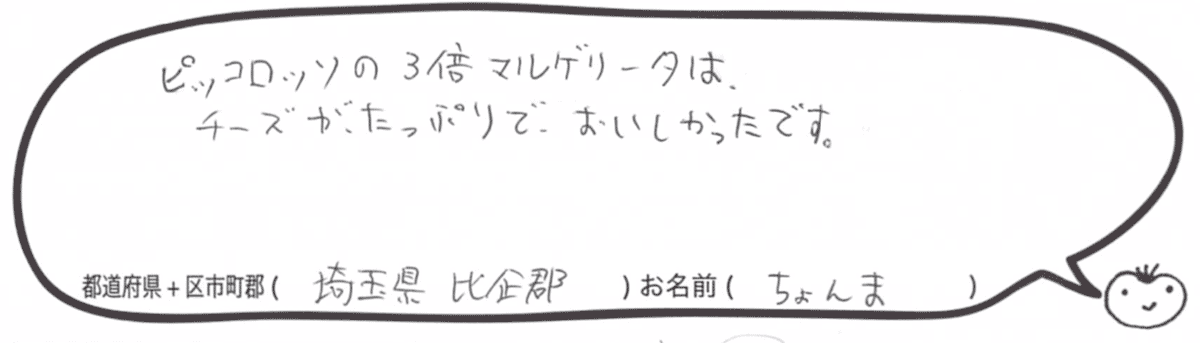 ピッコロッソの3倍マルゲリータは、
チーズが、たっぷりで、おいしかったです。
都道府県+区市町郡( 埼玉県 比企郡 )お名前( ちょんま )